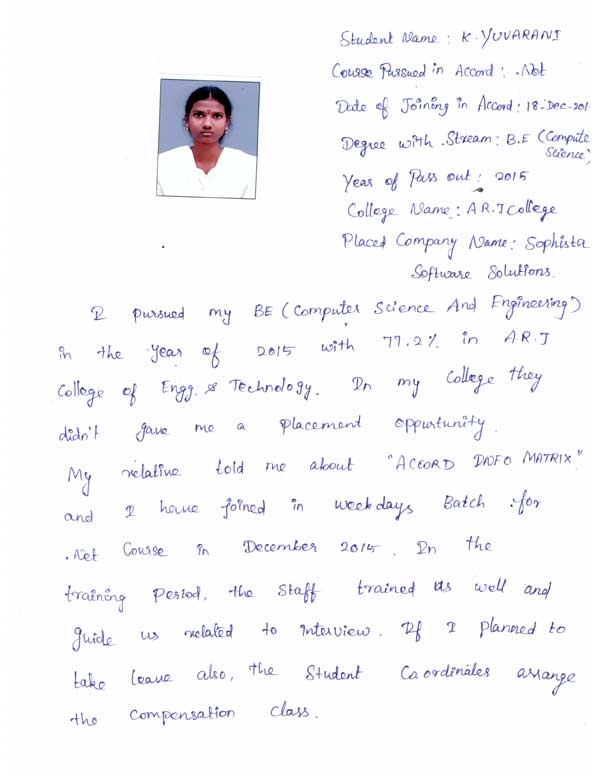 Student Name : K. YUVARANI
Course Pursued in Accord : .Net
Date of Joining in Accord : 18-Dec-201
Degree with Stream : B.E (Compute
Science)
Year of Pass out : 2015
College Name : A.R.J College
Placed Company Name : Sophista
Software Solutions.
I pursued my BE (Computer Science And Engineering)
in the year of 2015 with 77.2% in A.R.J
College of Engg. & Technology. In my college they
didn't gave me a placement oppurtunity.
My relative told me about "ACCORD INFO MATRIX"
and I have joined in weekdays Batch for
.Net Course in December 2015. In the
training Period, the Staff trained us well and
guide us related to interview. If I planned to
take leave also, the Student Coordinates arrange
the compensation class.